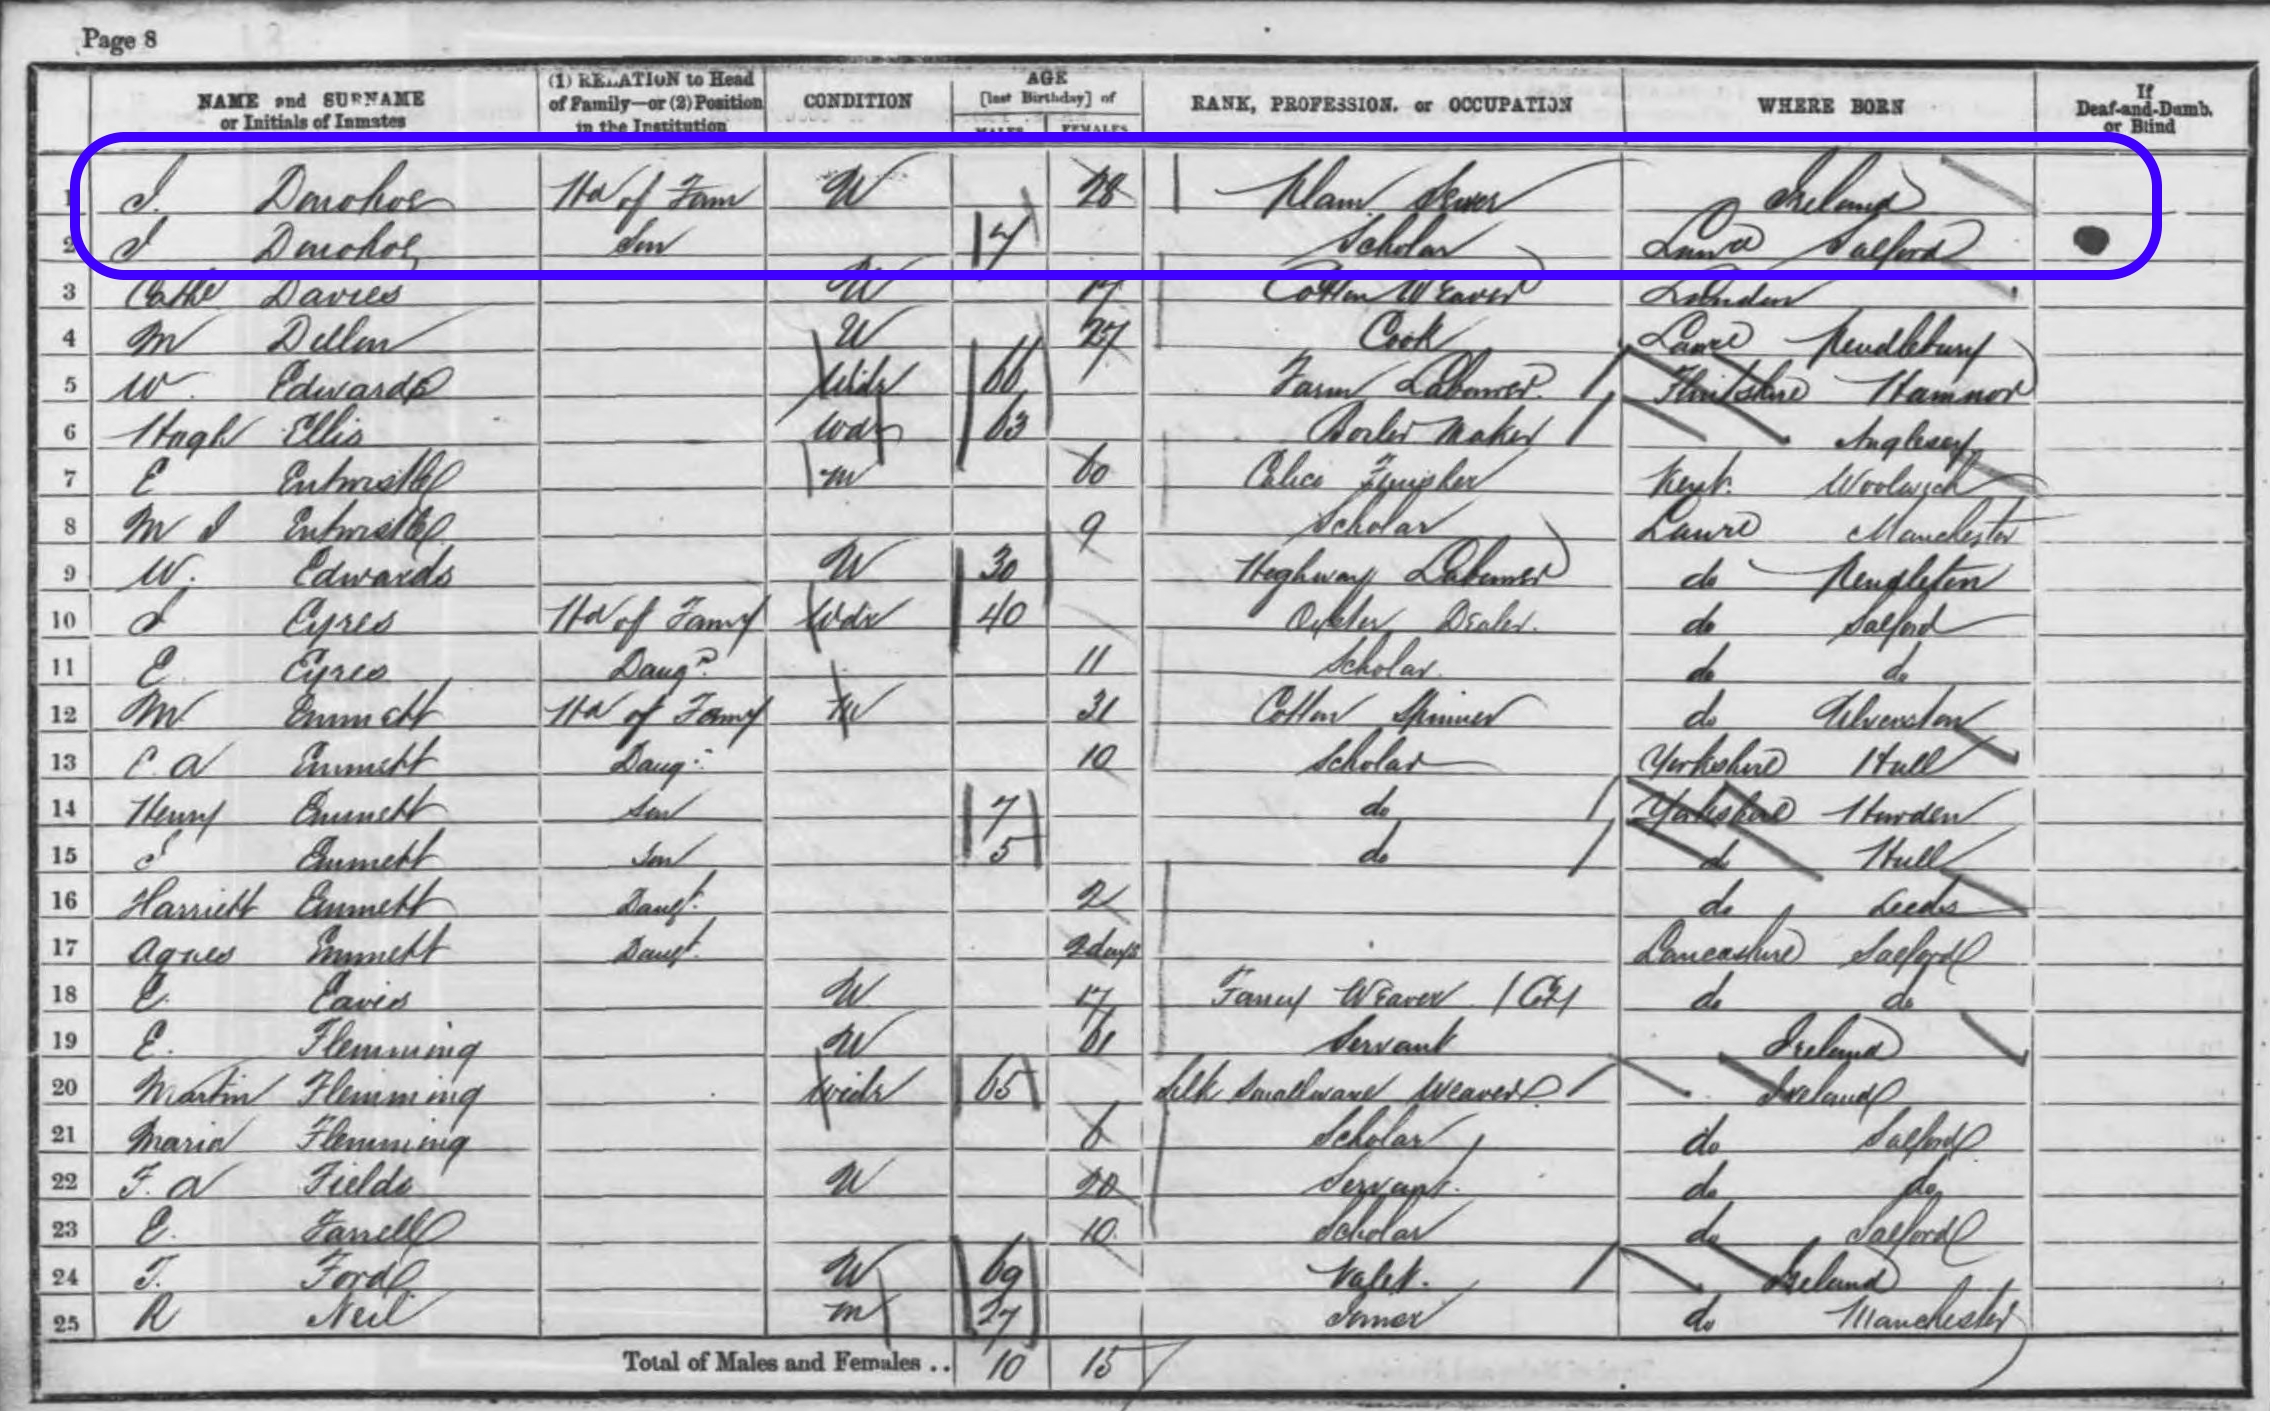 Page 8
NAME and SURNAME or Initials of Inmates
(1) RELATION to Head of Family—or (2) Position in the Institution
CONDITION
AGE [last Birthday] of
MALES FEMALES
RANK, PROFESSION, or OCCUPATION
WHERE BORN
If Deaf-and-Dumb, or Blind
1 J. Donohoe Hd of Fam U 28 Plain Sewer Ireland
2 J Donohoe Son 7 Scholar Lanc Salford
3 Cathe Davies U 17 Cotton Weaver London
4 M Dillon U 27 Cook Lanc Pendlebury
5 W. Edwards Widr 66 Farm Labourer. Flintshire Hanmor
6 Hugh Ellis Widr 63 Boiler Maker Anglesey
7 E Entwistle M 60 Calico Finisher Kent. Woolwich
8 M J Entwistle 9 Scholar Lanc Manchester
9 W. Edwards U 30 Highway Labourer do Pendleton
10 J Eyres Hd of Famy Widr 40 Oyster Dealer. do Salford
11 E Eyres Daugr. 11 Scholar. do do
12 M Emmett Hd of Famy 31 Cotton Spinner do Ulverston
13 E. A Emmett Daug. 10 Scholar Yorkshire Hull
14 Henry Emmett Son 7 do Yorkshire Howden
15 J Emmett Son 5 do do Hull
16 Harriett Emmett Daugt. 2 do Leeds
17 Agnes Emmett Daugt. 2 days Lancashire Salford
18 E. Eaves U 17 Fancy Weaver do do
19 E. Flemming U 61 Servant Ireland
20 Martin Flemming Widr 65 Silk Smallware Weaver Ireland
21 Maria Flemming 6 Scholar do Salford
22 F. A Fields U 20 Servant. do do
23 E. Farrell 10 Scholar do Salford
24 T. Ford U 69 Valet. Ireland
25 R Neil M 27 do Manchester
Total of Males and Females .. 10 15